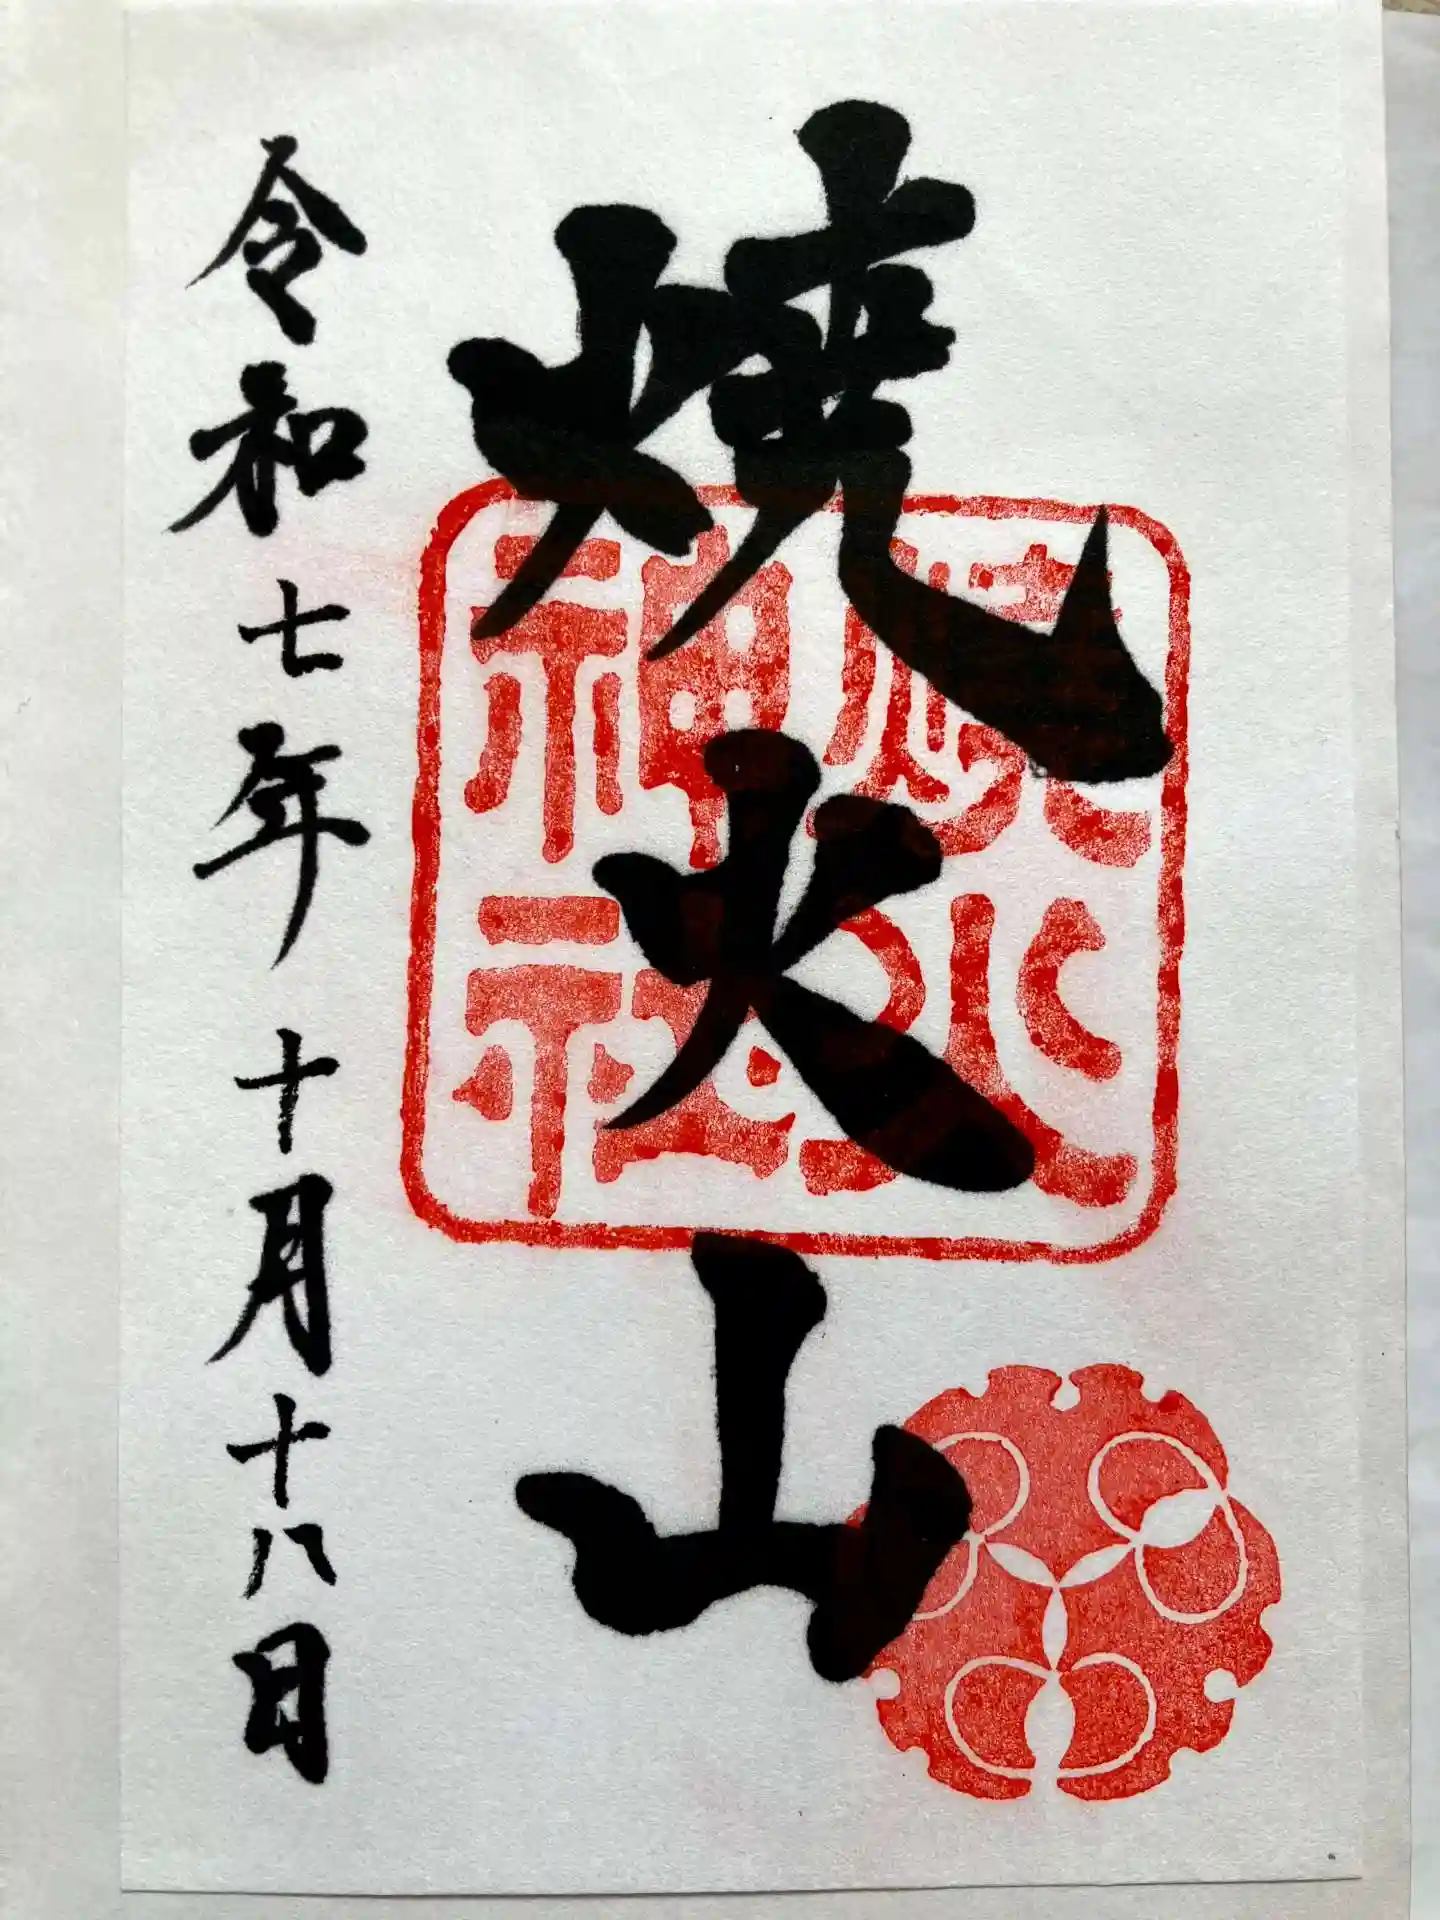 焼火山
焼火
神社
令和七年十月十八日